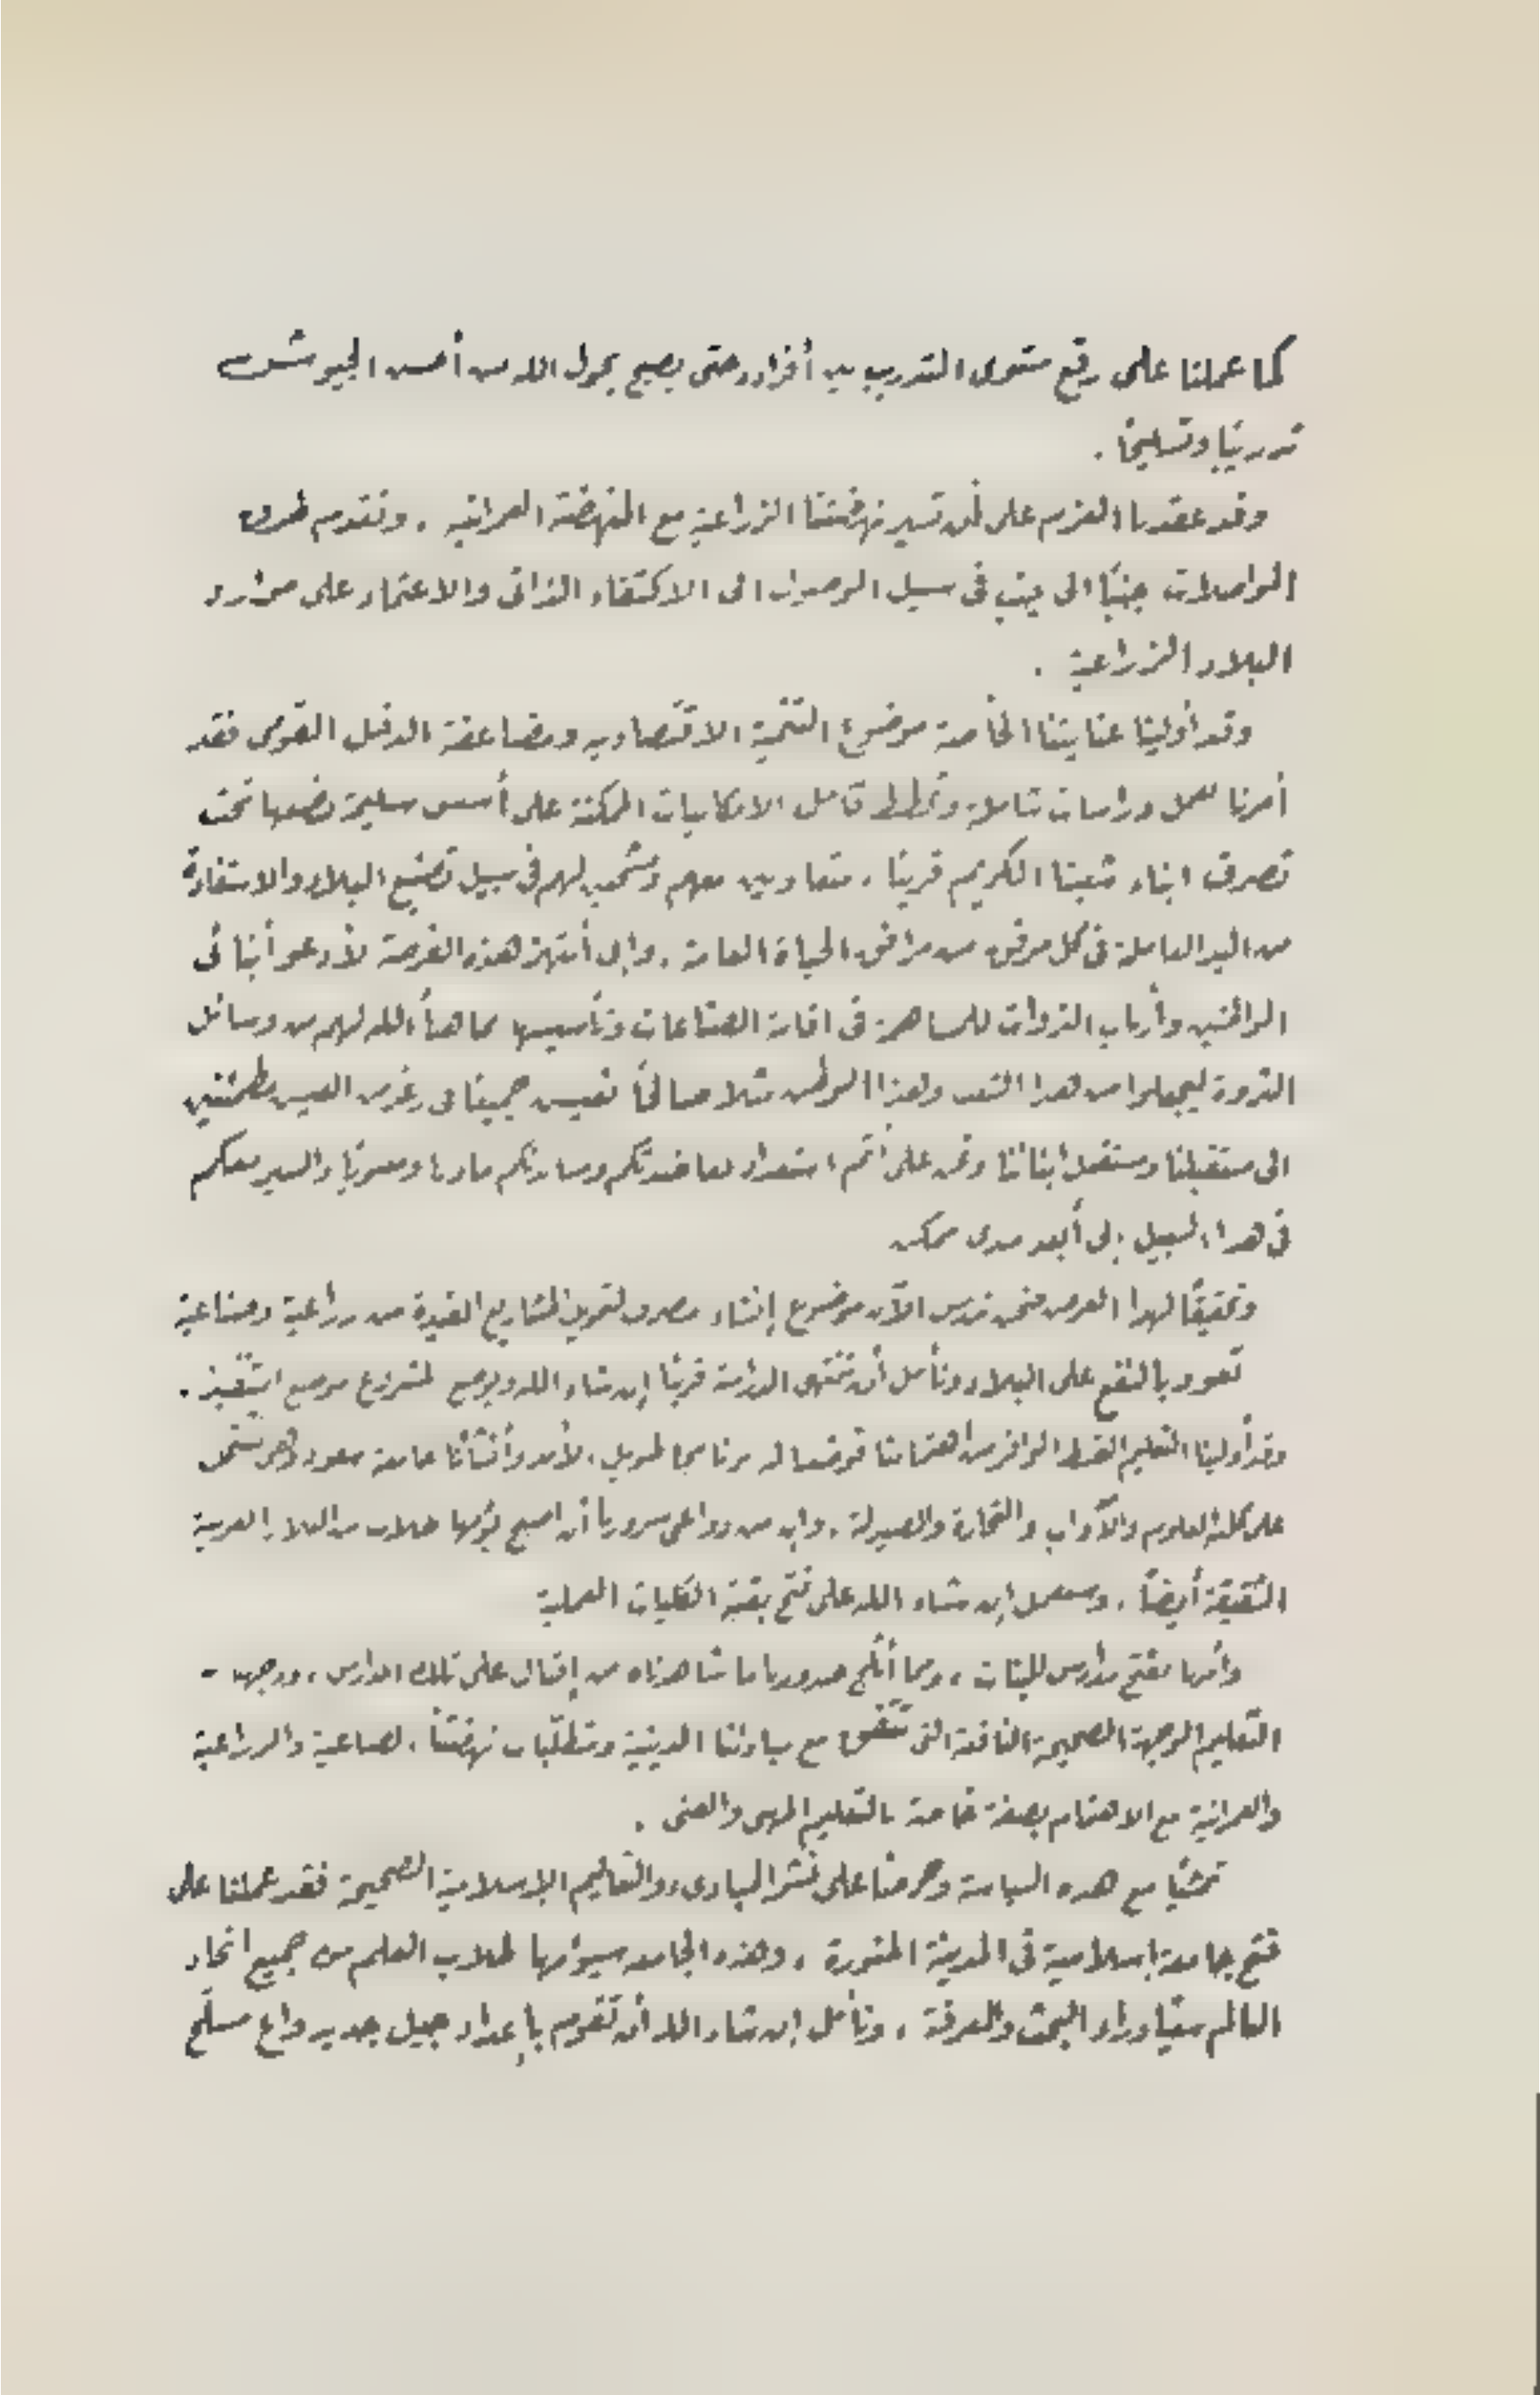 كما عملنا على رفع مستوى التدريب بين أفراده حتى يصبح بحول الله من أحسن الجيوش
تدريبًا وتسليحًا .
وقد عقدنا العزم على أن تسير نهضتنا الزراعية مع النهضة العمرانية . وتقدم طرق
المواصلات جنبًا الى جنب فى سبيل الوصول الى الاكتفاء الذاتى والاعتماد على موارد
البلاد الزراعية .
وقد أولينا عنايتنا الخاصة موضوع التنمية الاقتصادية ومضاعفة الدخل القومى فقد
أمرنا بعمل دراسات شاملة وتخطيط كامل الامكانيات الممكنة على أسس سليمة نضعها تحت
تصرف ابناء شعبنا الكريم قريبًا . متعاونين معهم ومشجعين لهم فى سبيل تصنيع البلاد والاستفادة
من اليد العاملة فى كل مرفق من مرافق الحياة العامة . وإنى أنتهز هذه الفرصة لأدعو أبنائى
المواطنين وأرباب الثروات للمساهمة فى اقامة الصناعات وتأسيسها مما هيأ الله لهم من وسائل
الثروة ليجعلوا من هذا الشعب ولهذا الوطن مثلا صالحًا نعيش جميعًا فى رغد من العيش مطمئنين
الى مستقبلنا ومستقبل ابنائنا ونحن على أتم استعداد لمعاضدتكم ومساندتكم ماديا ومعنويًا والسير معكم
فى هذا السبيل إلى أبعد مدى ممكن
وتحقيقًا لهذا الغرض فنحن ندرس الآن موضوع إنشاء مصرف لتمويل المشاريع المفيدة من زراعية وصناعية
تعود بالنفع على البلاد ونأمل أن تنتهى الدراسة قريبًا إن شاء الله ويوضع المشروع موضع التنفيذ .
وقد أولينا التعليم القسط الوافر من اهتمامنا فوضعنا له برنامجا طويل الأمد وأنشأنا جامعة سعود وهى تشتمل
على كلية العلوم والآداب والتجارة والصيدلة . وإن من دواعى سرورنا أن اصبح يؤمها طلاب من البلاد العربية
الشقيقة أيضًا . وسنعمل إن شاء الله على فتح بقية الكليات العملية
وأمرنا بفتح مدارس للبنات ، ومما أثلج صدورنا ما شاهدناه من إقبال على تلك المدارس ، ووجهنا -
التعليم الوجهة الصحيحة النافعة التى تتفق مع مبادئنا الدينية ومتطلّبات نهضتنا الصناعية والزراعية
والعمرانية مع الاهتمام بصفة خاصة بالتعليم المهنى والفنى .
تمشيًا مع هذه السياسة وحرصًا على نشر المبادىء والتعاليم الإسلامية الصحيحة فقد عملنا على
فتح جامعة إسلامية فى المدينة المنورة ، وهذه الجامعة سيؤمها طلاب العلم من جميع انحاء
العالم سعيًا وراء البحث والمعرفة ، ونأمل إن شاء الله أن تقوم بإعداد جيل جديد واع مسلّح